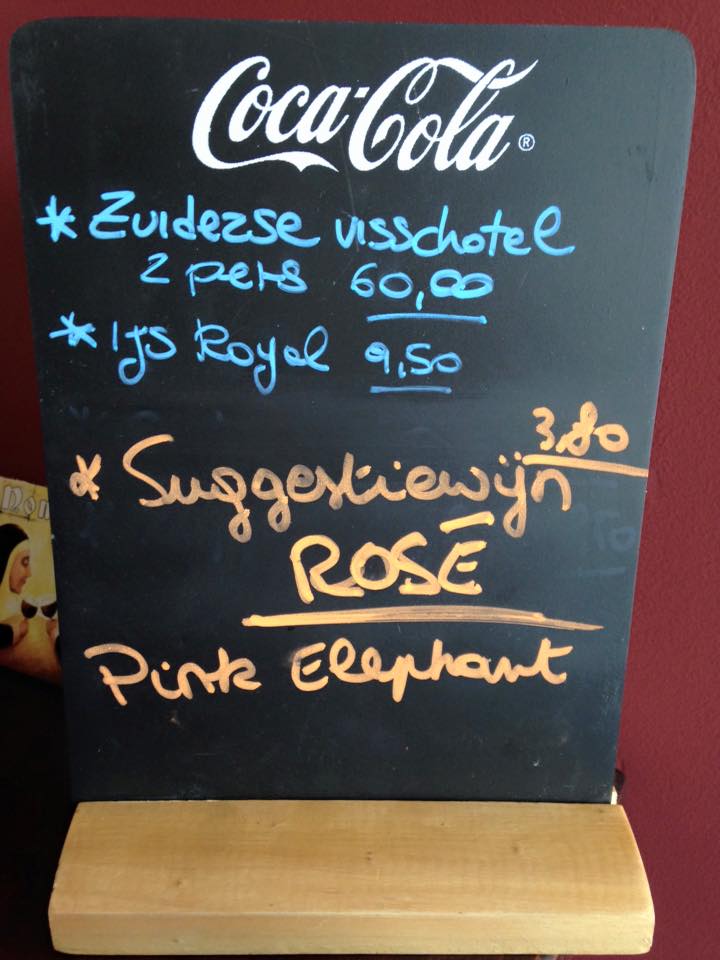 Coca-Cola®
* Zuiderzse visschotel
2 pers 60,00
* Ijs Royal 9,50
3.80
* Suggestiewijn
ROSÉ
Pink Elephant